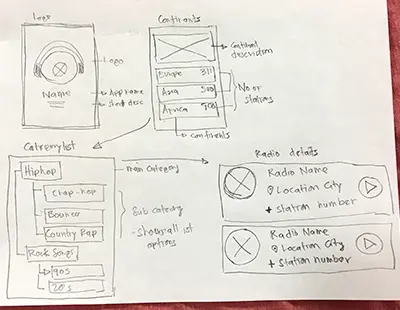 Logo
Logo
Name
App name
Short desc
Continants
Continant
description
Europe 311
Asia 500
Africa
No of
stations
continents
Category list
Hiphop
Chap-hop
Bounce
Country Rap
Rock Songs
90s
20's
main category
Sub category
- Shows all 1st
options
Radio details
Radio Name
Location City
+ Station number
Radio Name
Location City
+ Station number